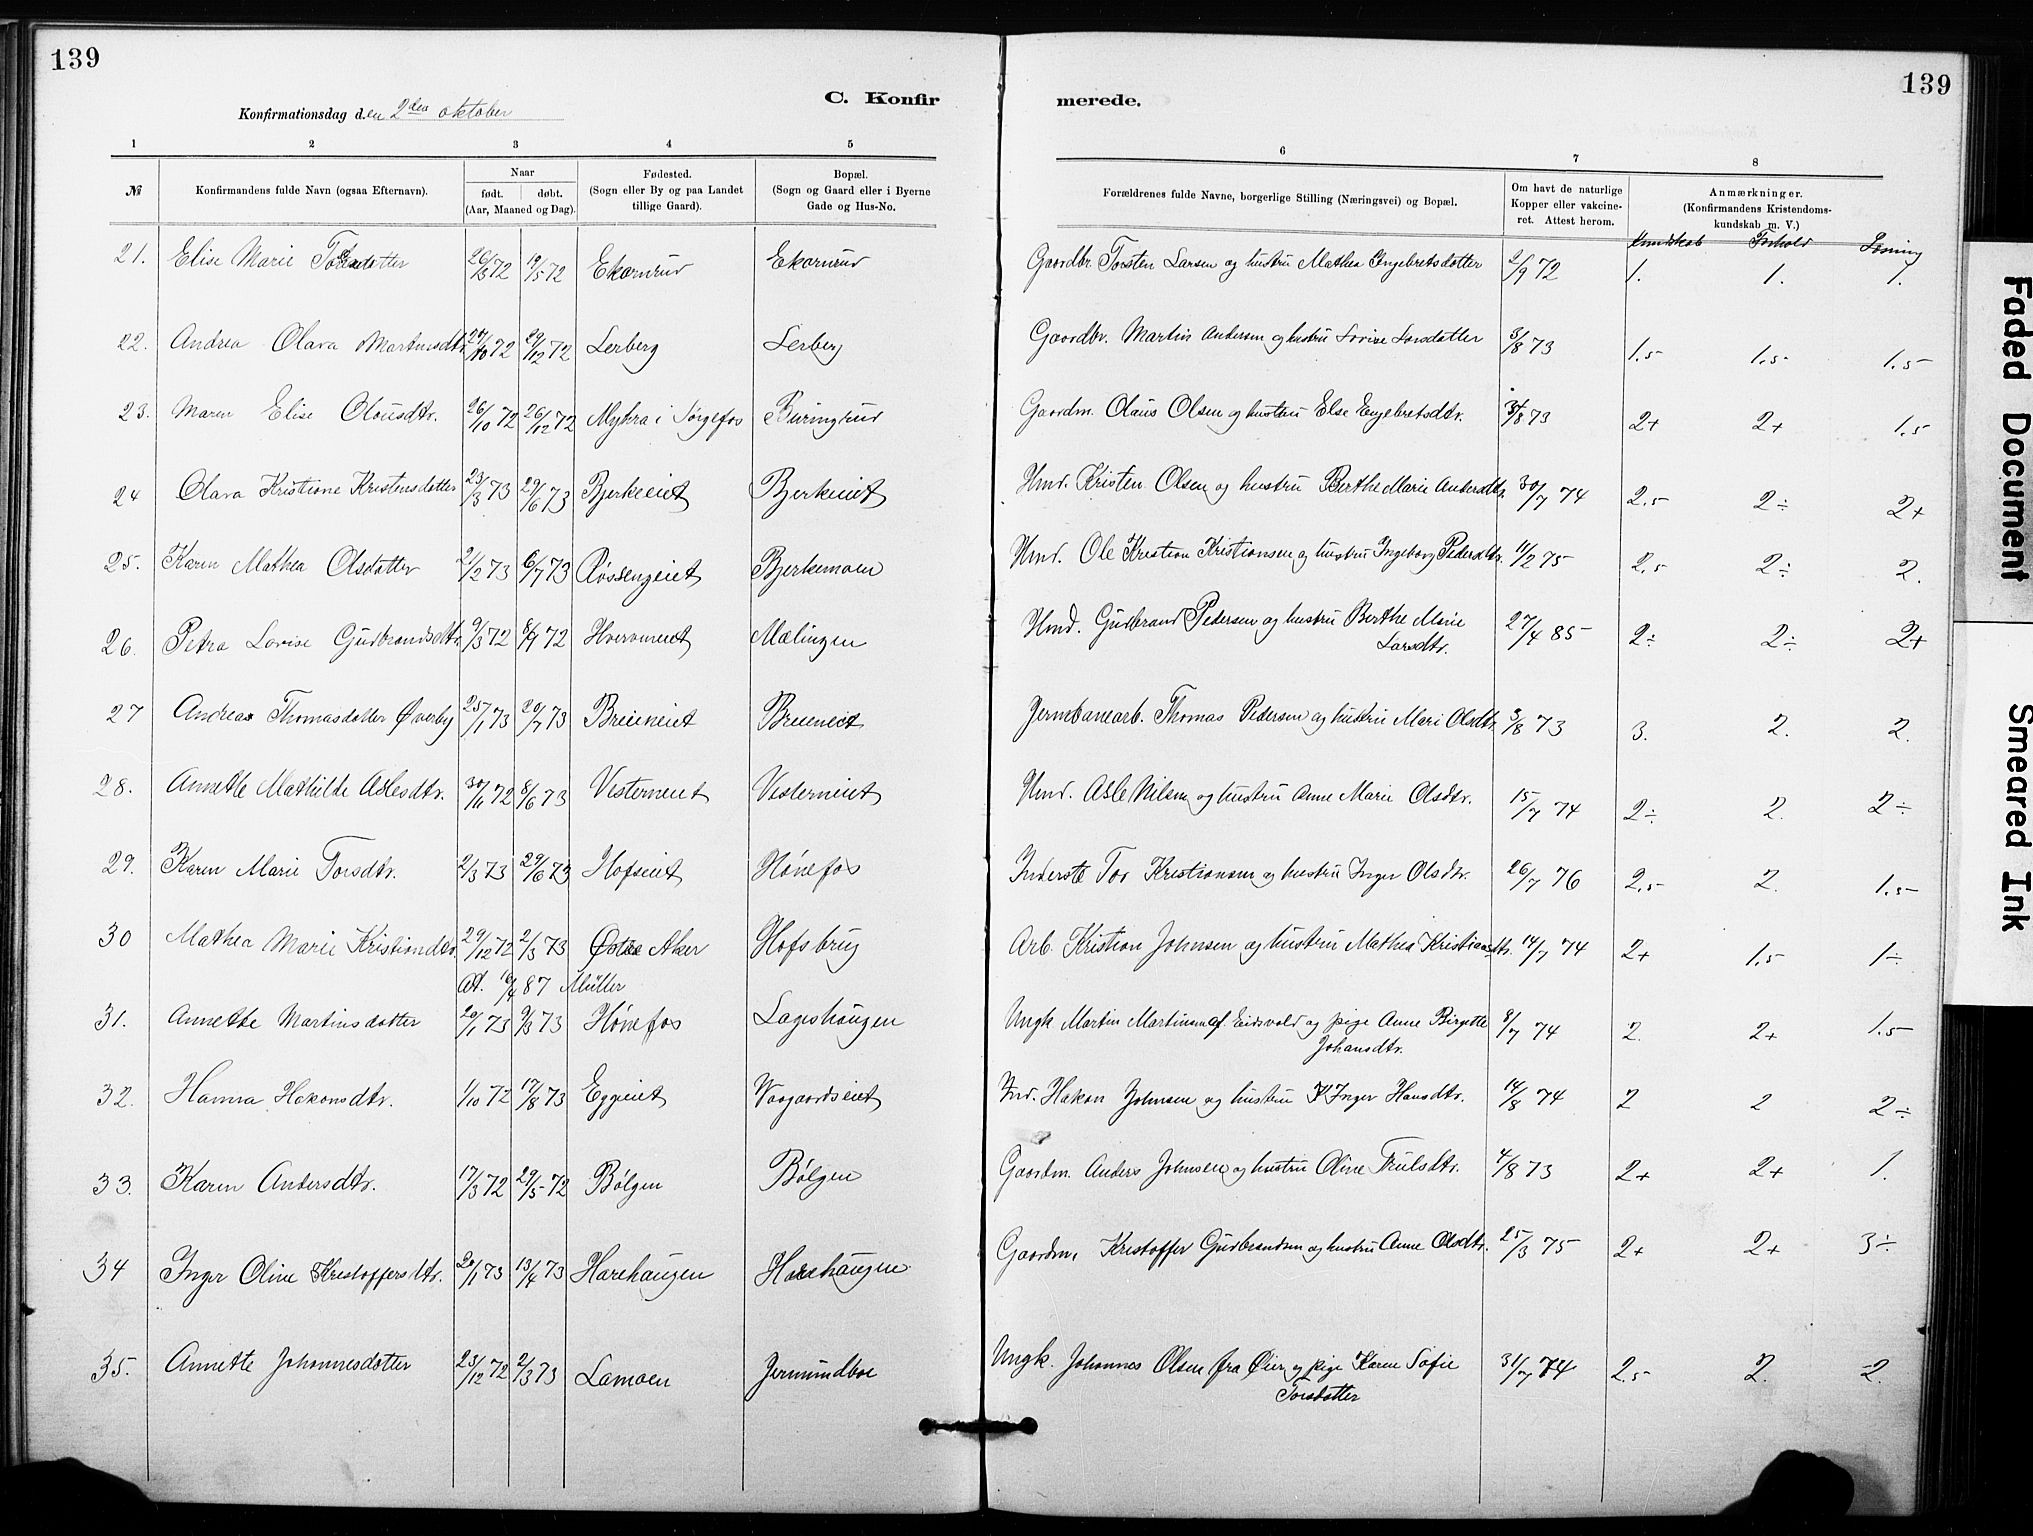 139
139
C. Konfir
merede.
Konfirmationsdag den 2den oktober
1 2 3 4 5 6 7 8
№ Konfirmandens fulde Navn (ogsaa Efternavn). Naar født. døbt. (Aar, Maaned og Dag). Fødested. (Sogn eller By og paa Landet tillige Gaard). Bopæl. (Sogn og Gaard eller i Byerne Gade og Hus-No. Forældrenes fulde Navne, borgerlige Stilling (Næringsvei) og Bopæl. Om havt de naturlige Kopper eller vakcineret. Attest herom. Anmærkninger. (Konfirmandens Kristendomskundskab m. V.)
Kundskab Forhold Læsning
21. Elise Marie 26/3 72 19/5 72 Ekornrud Ekornrud Gaardbr. Torsten Larsen og hustru Mathea Ingebretsdotter 2/9 72 1. 1. 1.
22. Andrea Olava Martinsdtr. 72 29/12 72 Lerberg Lerberg Gaardbr. Martin Andersen og hustru Lovise Larsdatter 3/8 73 1.5 1.5 1.5
23. Maren Elise Olausdtr. 26/10 72 26/12 72 Mykra i Sørgefos Buringrud Gaardm. Olaus Olsen og hustru Else Engebretsdtr. 8 73 2+ 2+ 1.5
24 Olava Kristiane Kristensdotter 23/3 73 29/6 73 Bjerkeeiet Bjerkeiet Hmd. Kristen Olsen og hustru Berthe Marie Andersdtr. 30/7 74 2.5 2÷ 2+
25. Karen Mathea Olsdotter 2/2 73 6/7 73 Røssengeiet Bjerkemoen Hmd. Ole Kristian Kristiansen og hustru Ingeborg Pedersdtr. 11/2 75 2.5 2÷ 2.
26. Petra Lovise Gudbrandsdtr. 9/3 72 8/9 72 Hvervmeiet Mælingen Hmd. Gudbrand Pedersen og hustru Berthe Marie Larsdtr. 27/4 85 2÷ 2÷ 2+
27 Andrea Thomasdotter Øverby 25/1 73 20/7 73 Breieneiet Breieneiet Jernbanearb. Thomas Pedersen og hustru Mari Olsdtr. 3/8 73 3. 2. 2.
28. Annette Mathilde Aslesdtr. 30/11 72 8/6 73 Vesterneiet Vesterneiet Hmd. Asle Nilsen og hustru Anne Marie Olsdtr. 15/7 74 2÷ 2. 2÷
29. Karen Marie Torsdtr. 2/3 73 29/6 73 Hofseiet Hønefos Inderste Tor Kristiansen og hustru Inger Olsdtr. 26/7 76 2.5 2. 1.5
30 Mathea Marie Kristiandtr. 29/12 72 2/3 73 Østre Aker Hofsbrug Arb. Kristian Johnsen og hustru Mathea Kristiansdtr. 14/7 74 2+ 1.5 1÷
At. 16/4 87 Müller
31. Annette Martinsdotter 20/1 73 9/3 73 Hønefos Lageshaugen Ungk. Martin Martinsen af Eidsvold og pige Anne Birgette Johansdtr. 8/7 74 2. 2+ 1.5
32. Hanna Hakonsdtr. 1/10 72 17/8 73 Eggeiet Vaagaardseiet Ind. Hakon Johnsen og hustru Inger Hansdtr. 14/8 74 2 2 2÷
33. Karen Andersdtr. 17/3 72 29/5 72 Bølgen Bølgen Gaardm. Anders Johnsen og hustru Oline Trulsdtr. 4/8 73 2+ 2+ 1.
34 Inger Oline Kristoffersdtr. 20/1 73 13/4 73 Harehaugen Harehaugen Gaardm. Kristoffer Gudbrandsen og hustru Anne Olsdtr. 25/3 75 2+ 2+ 3÷
35. Annette Johannesdotter 23/12 72 2/3 73 Lamoen Jermundboe Ungk. Johannes Olsen fra Øier og pige Karen Sofie Torsdotter 31/7 74 2.5 2. 2.
Faded Document
Smeared Ink